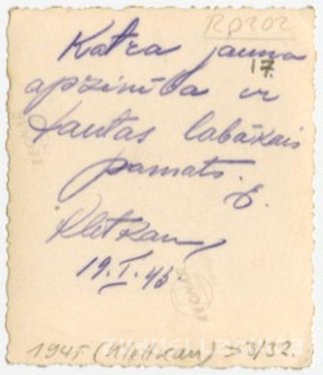 RP202
Katra jauna
17.
apziņība ir
tautas labākais
pamats.
E.
Kletkau,
19.I.45.
1945 (Kletkau)